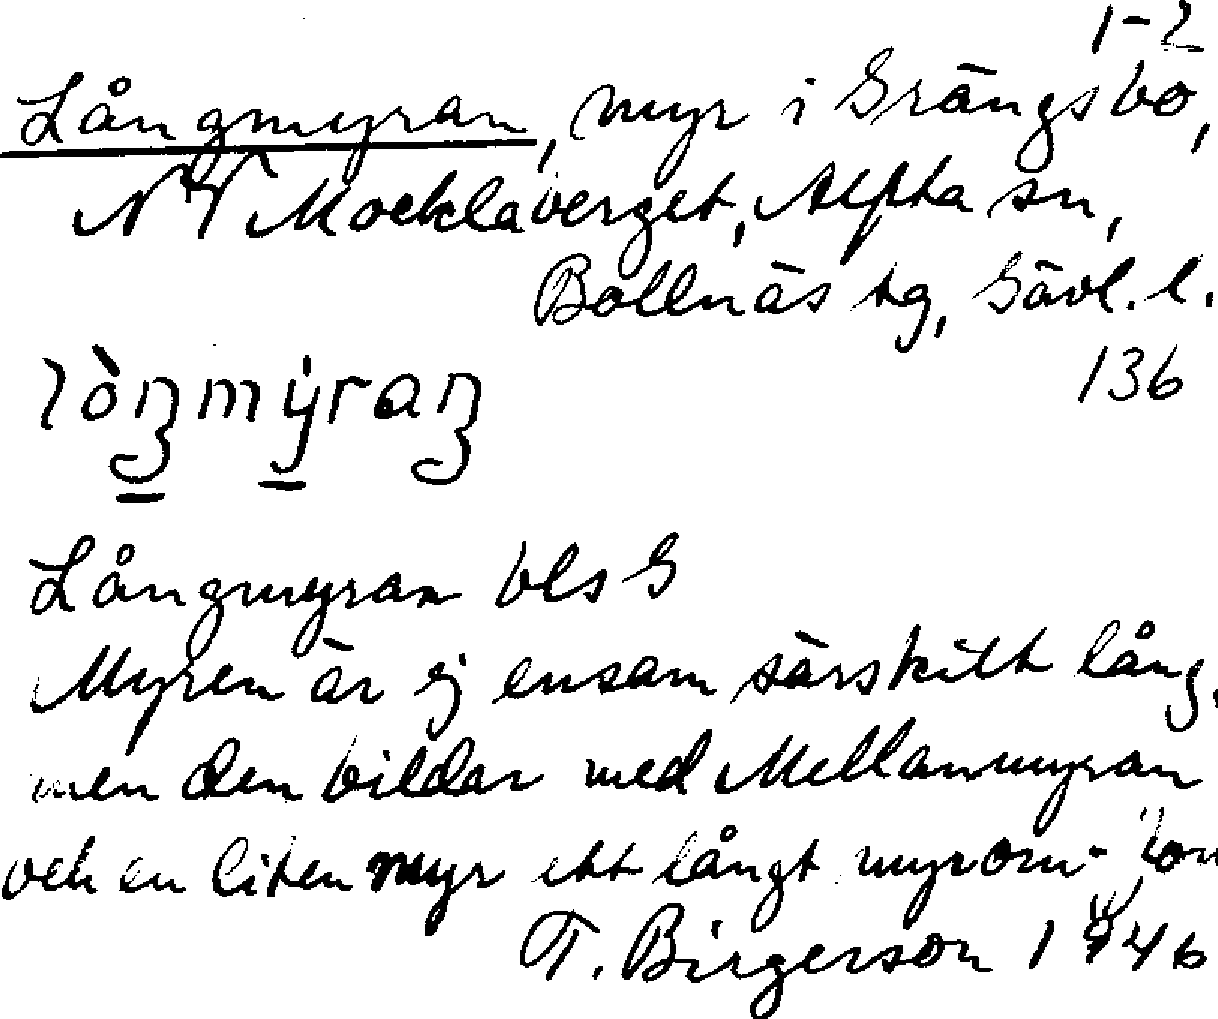 1-2
Långmyran, myr i Grängsbo,
NV Mocklaberget, Alfta sn,
Bollnäs tg, Gävl. l.
136
lòŋmýraŋ
Långmyran bls G
Myren är ej ensam särskilt lång,
men den bildar med Mellanmyran
och en liten myr ett långt myrom-
T. Birgerson 1946